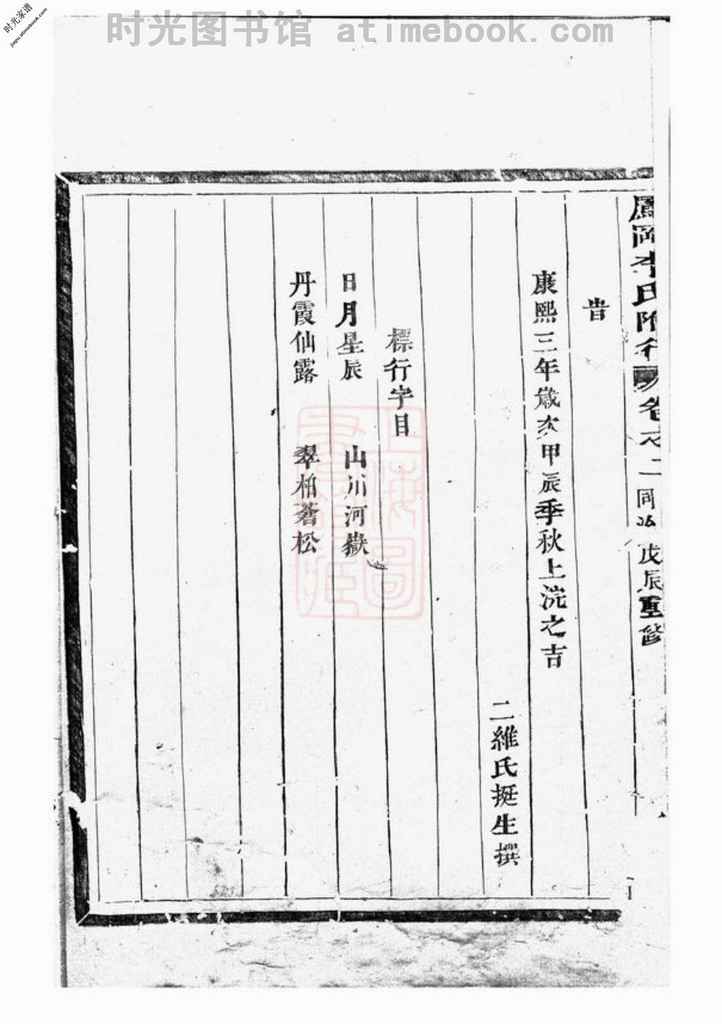 时光图书馆 atimebook.com
时光家谱
jiapu.atimebook.com
李氏 行 卷之二 同治戊辰重
旹
康熙三年歲次甲辰季秋上浣之吉
二維氏挺生撰
標行字目
日月星辰 山川河嶽
丹霞仙露 翠柏蒼松